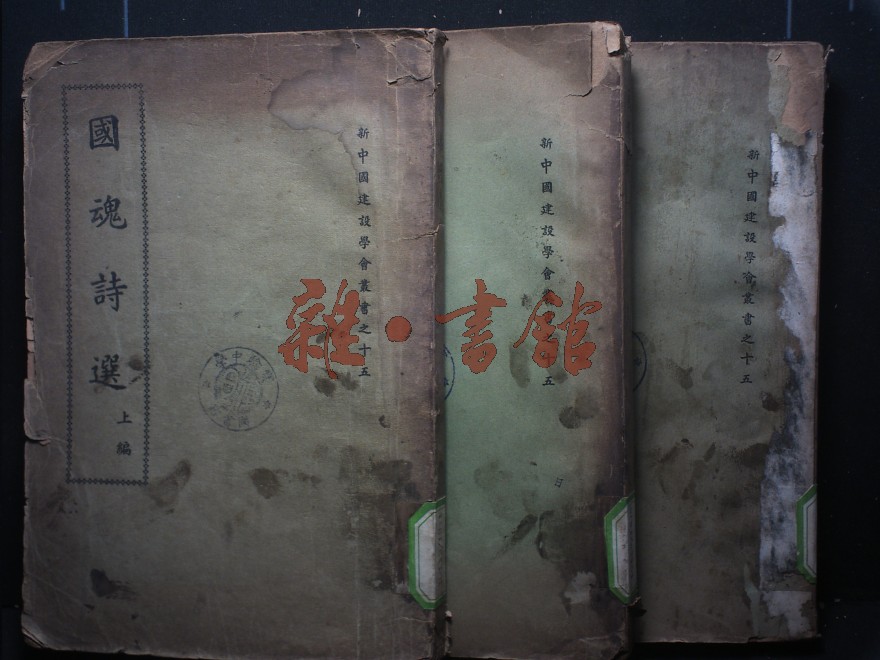 國魂詩選
上編
新中國建設學會叢書之十五
新中國建設學會叢書之十五
新中國建設學會叢書之十五
雜·書館